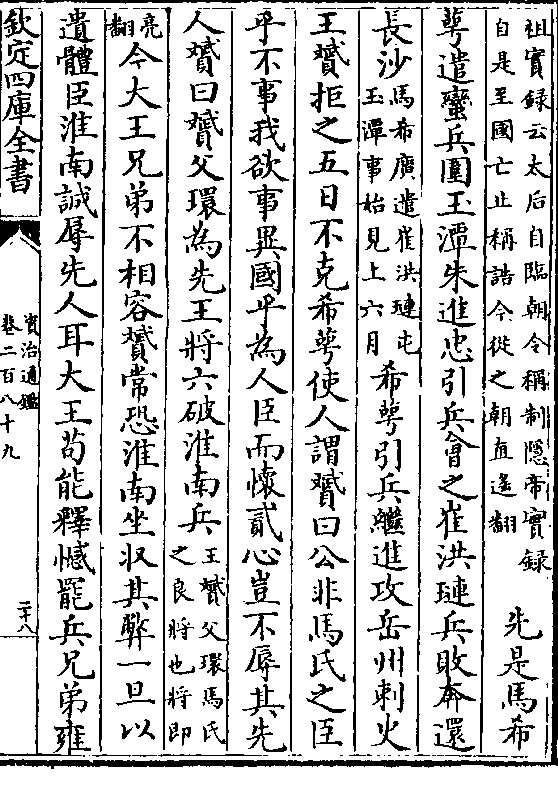 祖實録云太后自臨朝令稱制隱帝實録
自是至國亡止稱誥今從之朝直遥翻
先是馬希
萼遣蠻兵圍玉潭朱進忠引兵會之崔洪璉兵敗奔還
長沙
馬希廣遣崔洪璉屯
玉潭事始見上六月
希萼引兵繼進攻岳州刺史
王贇拒之五日不克希萼使人謂贇曰公非馬氏之臣
乎不事我欲事異國乎為人臣而懷貳心豈不辱其先
人贇曰贇父環為先王將六破淮南兵
王贇父環馬氏
之良將也將即
亮
翻
今大王兄弟不相容贇常恐淮南坐収其弊一旦以
遺體臣淮南誠辱先人耳大王苟能釋憾罷兵兄弟雍
欽定四庫全書
資治通鑑
卷二百八十九
二十八